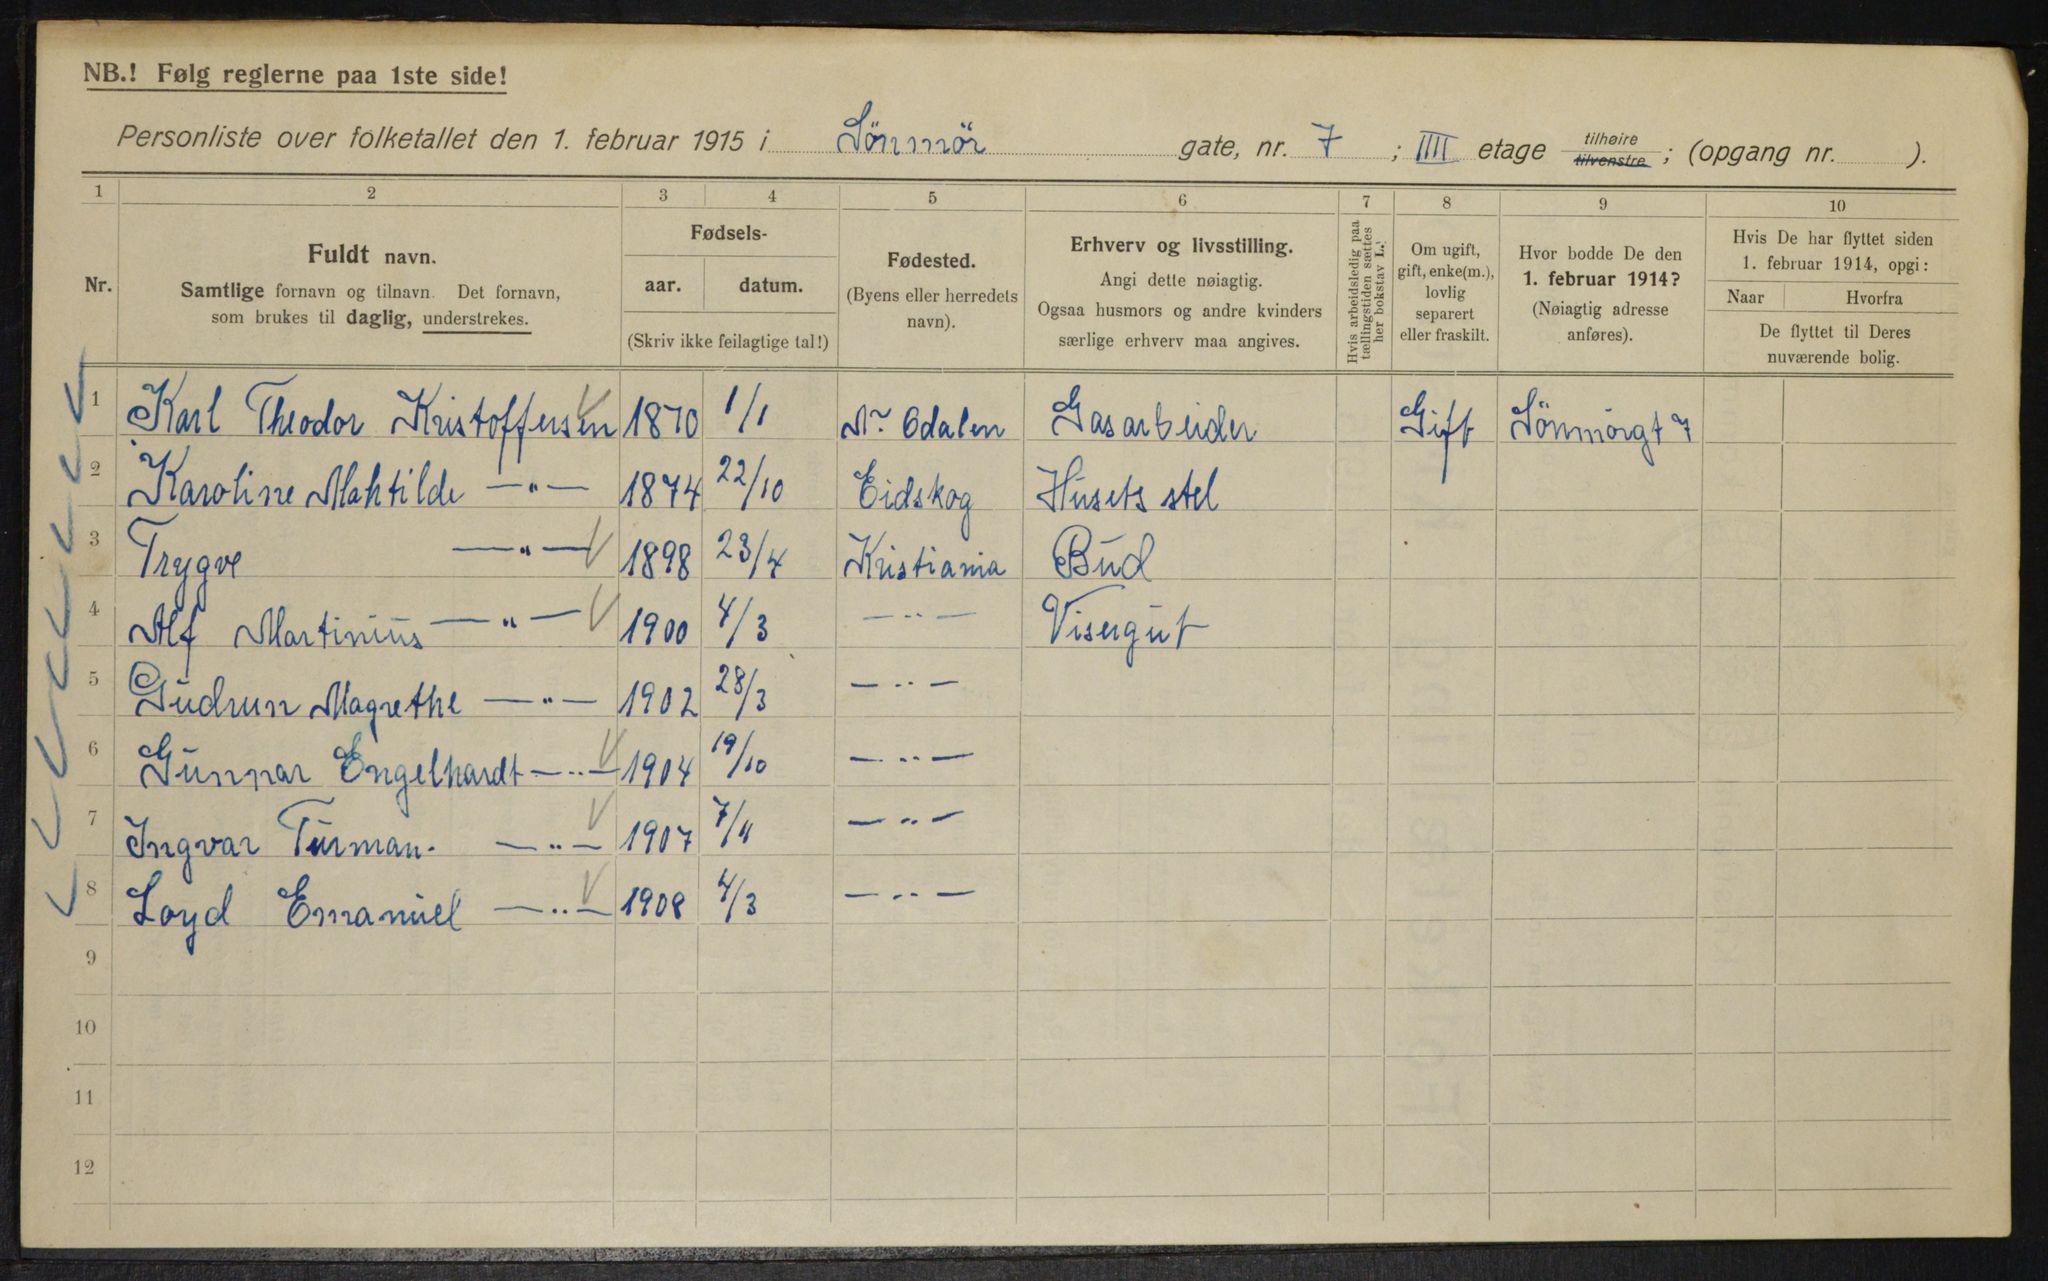 NB.! Følg reglerne paa 1ste side!
Personliste over folketallet den 1. februar 1915 i Sönmör gate, nr. 7 ; IIII etage tilhøire tilvenstre ; (opgang nr. ).
1 2 3 4 5 6 7 8 9 10
Nr.
Fuldt navn.
Samtlige fornavn og tilnavn. Det fornavn,
som brukes til daglig, understrekes.
Fødsels-
aar. datum.
(Skriv ikke feilagtige tal!)
Fødested.
(Byens eller herredets
navn).
Erhverv og livsstilling.
Angi dette nøiagtig.
Ogsaa husmors og andre kvinders
særlige erhverv maa angives.
Hvis arbeidsledig paa
tællingstiden sættes
her bokstav L.
Om ugift,
gift, enke(m.),
lovlig
separert
eller fraskilt.
Hvor bodde De den
1. februar 1914?
(Nøiagtig adresse
anføres).
Hvis De har flyttet siden
1. februar 1914, opgi:
Naar Hvorfra
De flyttet til Deres
nuværende bolig.
1 Karl Theodor Kristoffersen 1870 1/1 Nr Odalen Gasarbeider Gift Sönmörgt 7
2 Karoline Maktilde —"— 1874 22/10 Eidskog Husets stel
3 Trygve —"— 1898 23/4 Kristiania Bud
4 Alf Martinius —"— 1900 4/3 —"— Visergut
5 Gudrun Magrethe —"— 1902 28/3 —"—
6 Gunnar Engelhardt —"— 1904 19/10 —"—
7 Ingvar Turman. —"— 1907 —"—
8 Loyd Emanuel —"— 1908 4/3 —"—
9
10
11
12